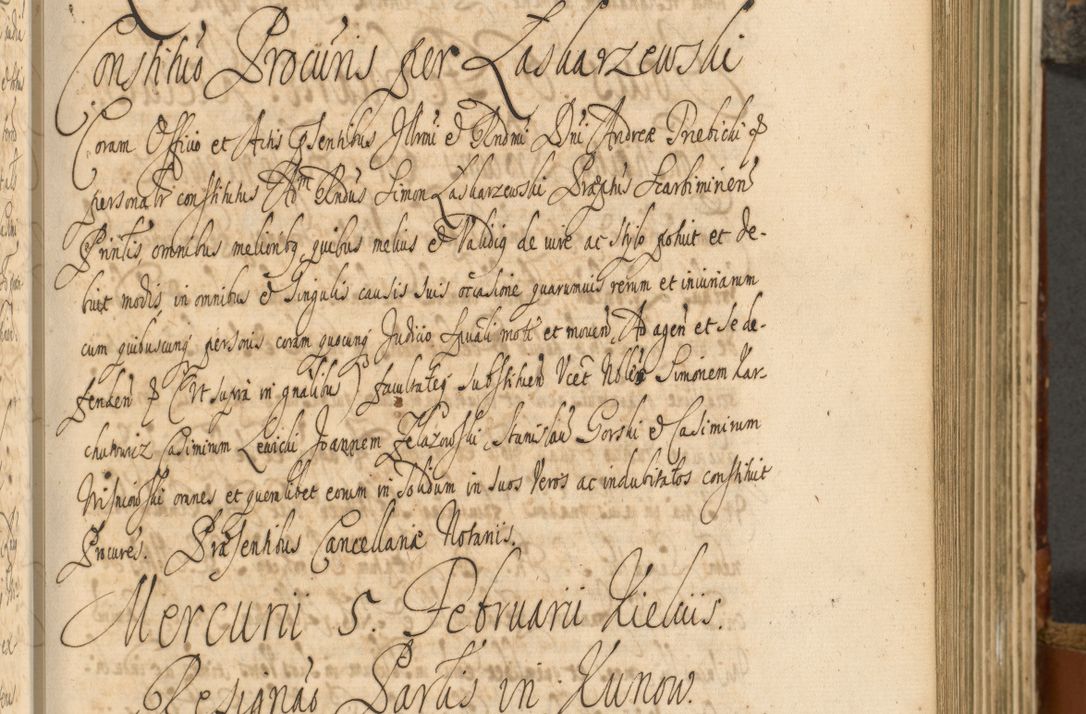 Constitu͠o Procu͠ris per Laskarzewski
Coram Officio et Actis p͠sentibus Illr͠mi et Rndmi Dni Andreæ Trebicki &
personalr constitutus Adm Rndus Simon Laskarzewski Præptus Scarbimirien
Prin͠lis, omnibus melioribq quibus melius et Validiq de iure ac stylo potuit et de-
buit modis, in omnibus et singulis causis suis occasione quarumuis rerum et iniuriarum
cum quibuscunq personis coram quocunq Judicio Sp͠uali mot et mouen, Ad agen et se de-
fenden & (Vt supra in gn͠alibus) facultateq substituen Vcet Nobles Simonem Kar-
chutowicz Casimirum Lewicki Joannem Zelazowski, Stanislau Gorski et Casimirum
Wisniowski omnes et quemlibet eorum in solidum in suos Veros ac indubitatos constituit
Procures. Præsentibus Cancellariæ Notariis.
Mercurii 5. Februarii Kielciis.
Resigna͠o Partis in Kunow.